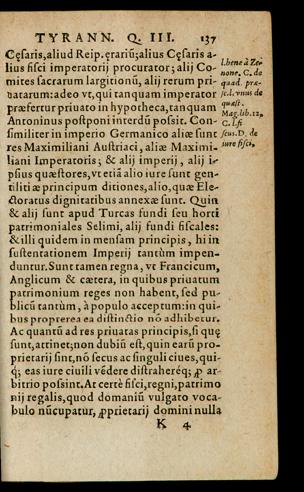 TYRANN. Q. III. 137
Cęsaris, aliud Reip. ęrariũ; alius Cęsaris a-
lius fisci imperatorij procurator; alij Co-
mites sacrarum largitionũ, alij rerum pri-
uatarum: adeo vt, qui tanquam imperator
præfertur priuato in hypotheca, tanquam
Antoninus postponi interdũ possit. Con-
similiter in imperio Germanico aliæ sunt
res Maximiliani Austriaci, aliæ Maximi-
liani Imperatoris; & alij imperij, alij i-
psius quæstores, vt etiã alio iure sunt gen-
tilitiæ principum ditiones, alio, quæ Ele-
ctoratus dignitatibus annexæ sunt. Quin
& alij sunt apud Turcas fundi seu horti
patrimoniales Selimi, alij fundi fiscales:
& illi quidem in mensam principis, hi in
sustentationem Imperij tantùm impen-
duntur. Sunt tamen regna, vt Francicum,
Anglicum & cætera, in quibus priuatum
patrimonium reges non habent, sed pu-
blicũ tantùm, à populo acceptum: in qui-
bus propterea ea distinctio nõ adhibetur.
Ac quantũ ad res priuatas principis, si quę
sunt, attinet; non dubiũ est, quin earũ pro-
prietarij sint, nõ secus ac singuli ciues, qui-
q́; eas iure ciuili vẽdere distrahereq́; ꝓ ar-
bitrio possint. At certè fisci, regni, patrimo
nij regalis, quod domaniũ vulgato voca-
bulo nũcupatur, ꝓprietarij domini nulla
K 4
l. bene à Ze-
none. C. de
quad. præ-
sc. l. vnus de
quæst.
Mag. lib. 12,
C. l. si
scus. D. de
iure fisci,